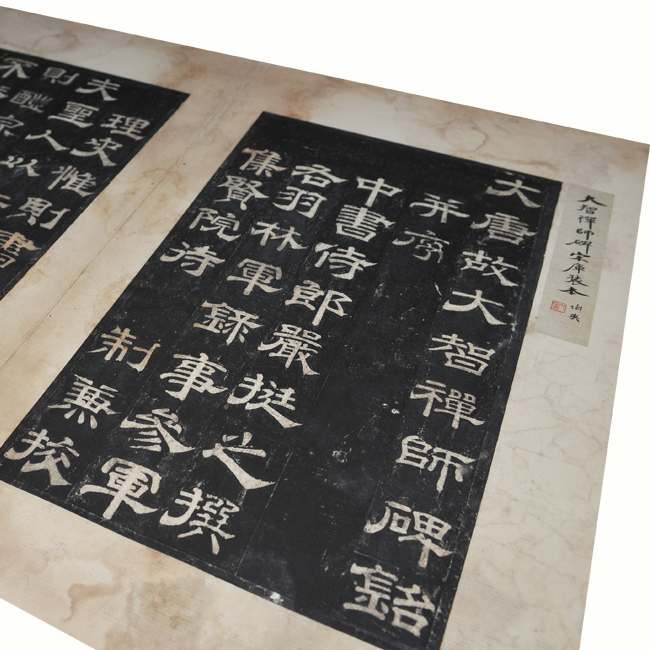 大智禪師碑宋庫裝本
大唐故大智禪師碑銘
并序
中書侍郎嚴挺之撰
右羽林軍録事參軍
集賢院待制兼校
理史惟則書
夫聖人以
則